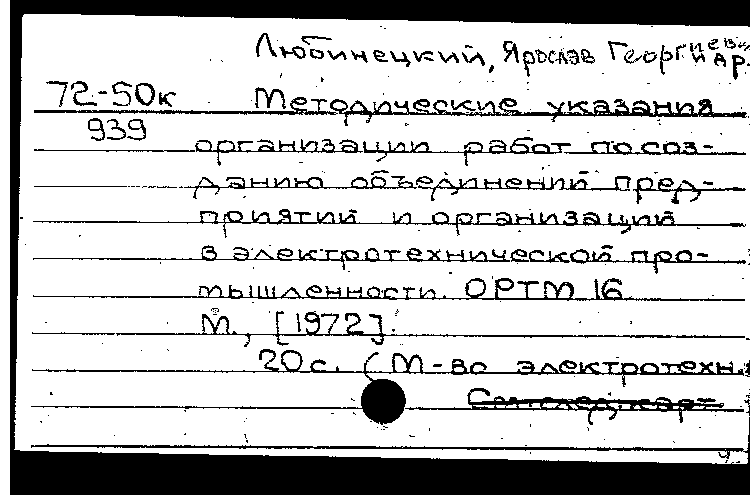 Любинецкий, Ярослав Георгиевич и др.
72-50к Методические указания
939 организации работ по соз-
данию объединений пред-
приятий и организаций
в электротехнической про-
мышленности. ОРТМ 16
М., [1972].
20 с. (М-во электротехн.